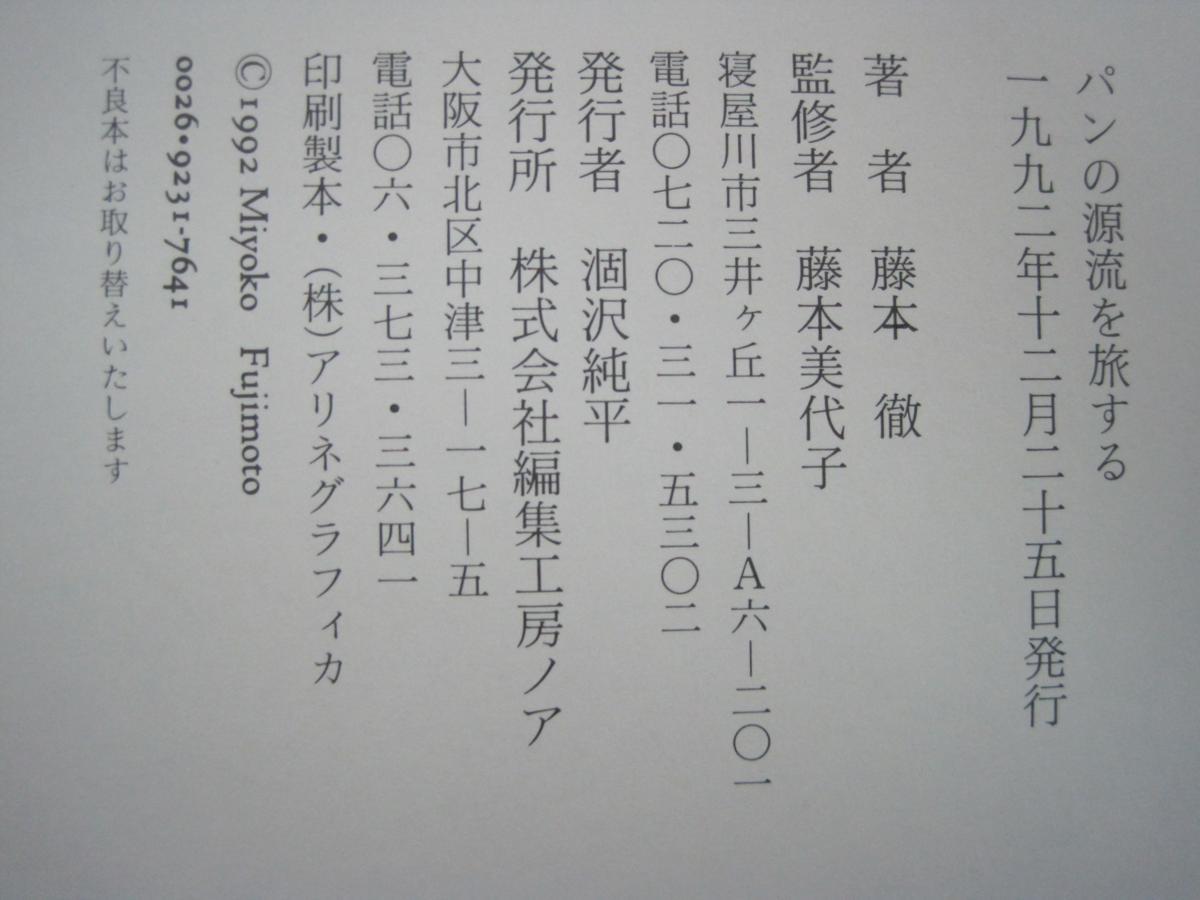 パンの源流を旅する
一九九二年十二月二十五日発行
著　者　藤本　徹
監修者　藤本美代子
寝屋川市三井ヶ丘一―三―A六―二〇一
電話〇七二〇・三一・五三〇二
発行者　涸沢純平
発行所　株式会社編集工房ノア
大阪市北区中津三―一七―五
電話〇六・三七三・三六四一
印刷製本・(株)アリネグラフィカ
©1992 Miyoko Fujimoto
0026・9231-7641
不良本はお取り替えいたします